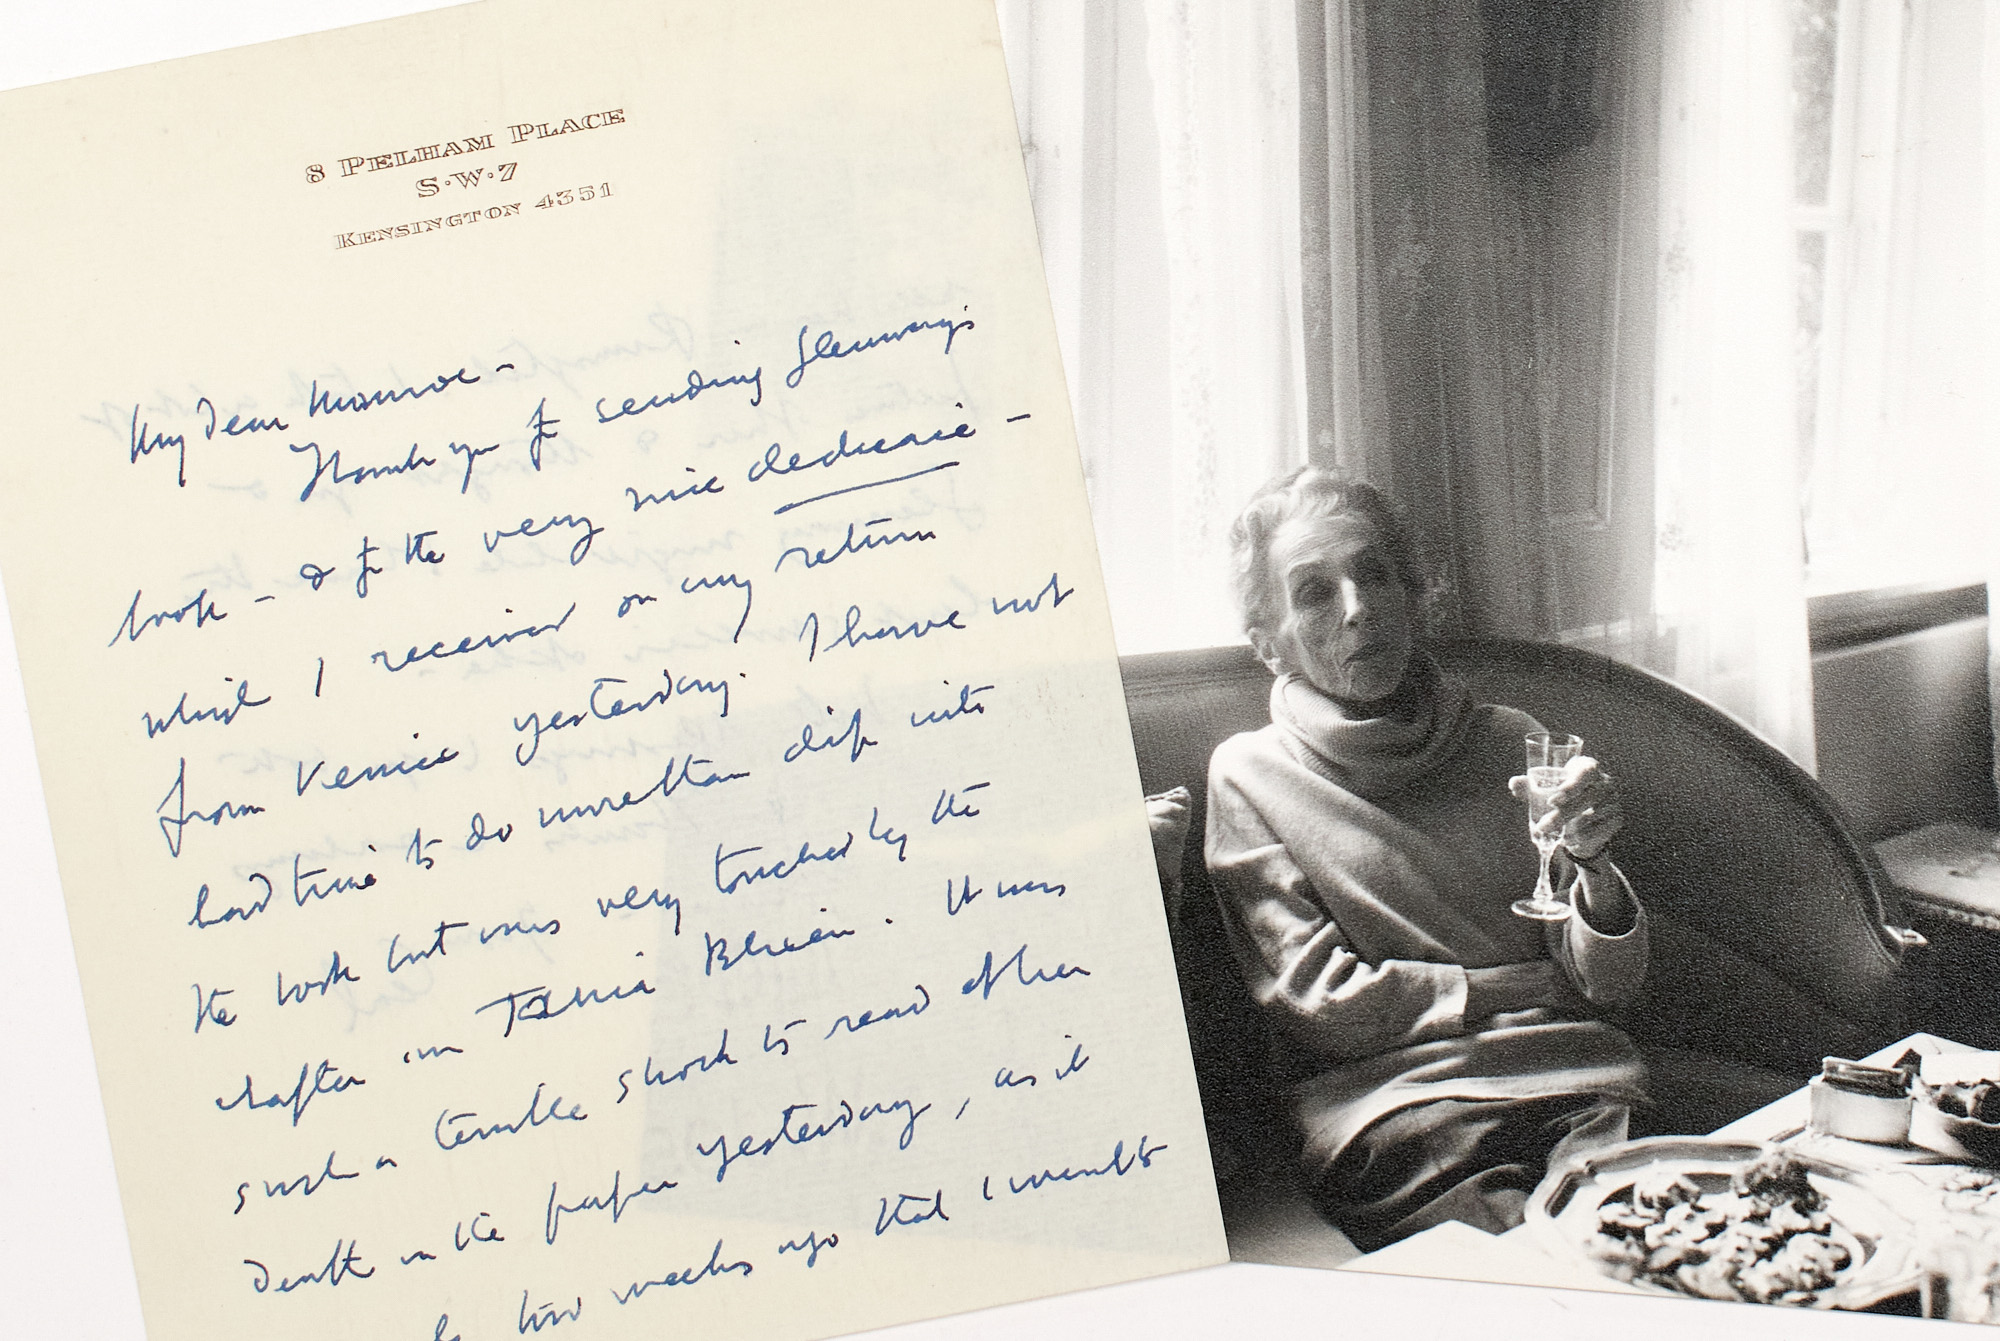 8 PELHAM PLACE
S·W·7
KENSINGTON 4351
My dear Monroe –
Thank you for sending Glenway's
book – & for the very nice dedicace –
which I received on my return
from Venice yesterday. I have not
had time to do more than dip into
the book but was very touched by the
chapter on Tania Blixen. It was
such a terrible shock to read of her
death in the paper yesterday, as it
two weeks ago that I went to